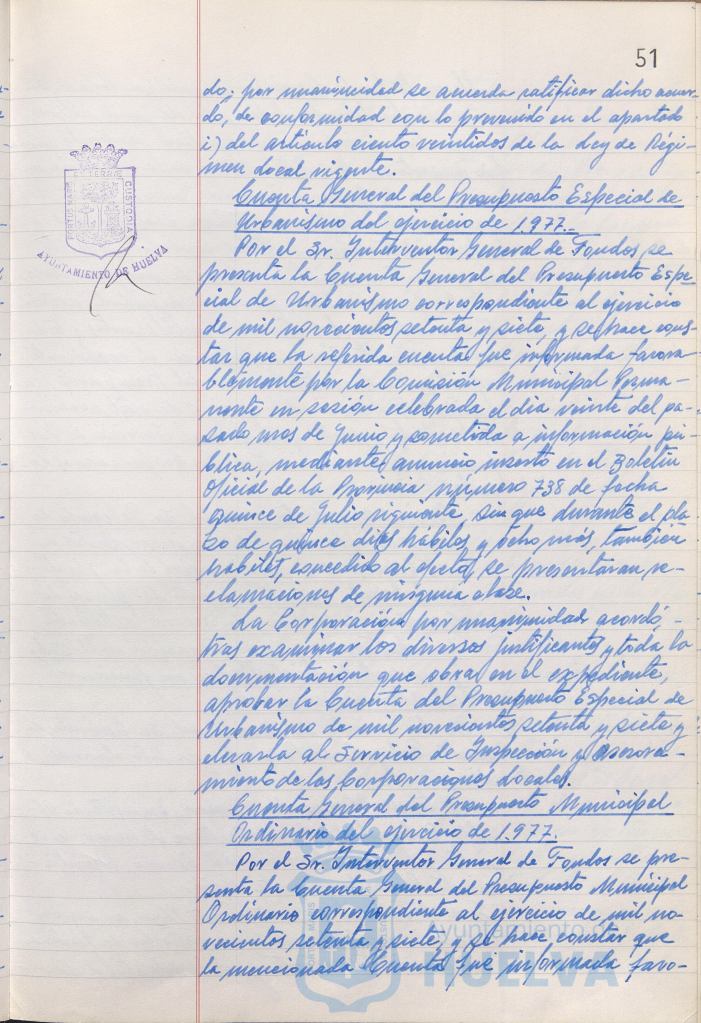 51
do; por unanimidad se acuerda ratificar dicho acuer-
do, de conformidad con lo prevenido en el apartado
i) del artículo ciento veintidos de la Ley de Régi-
men Local vigente.
Cuenta General del Presupuesto Especial de
Urbanismo del ejercicio de 1.977.-
Por el Sr. Interventor General de Fondos se
presenta la Cuenta General del Presupuesto Espe-
cial de Urbanismo correspondiente al ejercicio
de mil novecientos setenta y siete, y se hace cons-
tar que la referida cuenta fue informada favora-
blemente por la Comisión Municipal Perma-
nente en sesión celebrada el día veinte del pa-
sado mes de Junio y sometida a información pú-
blica, mediante anuncio inserto en el Boletín
Oficial de la Provincia número 738 de fecha
quince de Julio siguiente, sin que durante el pla-
zo de quince días hábiles y ocho más, también
hábiles, concedido al efecto, se presentaran re-
clamaciones de ninguna clase.
La Corporación por unanimidad acordó,
tras examinar los diversos justificantes y toda la
documentación que obra en el expediente,
aprobar la Cuenta del Presupuesto Especial de
Urbanismo de mil novecientos setenta y siete y
elevarla al Servicio de Inspección y Asesora-
miento de las Corporaciones Locales.
Cuenta General del Presupuesto Municipal
Ordinario del ejercicio de 1.977.
Por el Sr. Interventor General de Fondos se pre-
senta la Cuenta General del Presupuesto Municipal
Ordinario correspondiente al ejercicio de mil no-
vecientos setenta y siete, y se hace constar que
la mencionada Cuenta fué informada favo-
PORTUS MARIS ET TERRAE CUSTODIA
AYUNTAMIENTO DE HUELVA
Ayuntamiento de
HUELVA